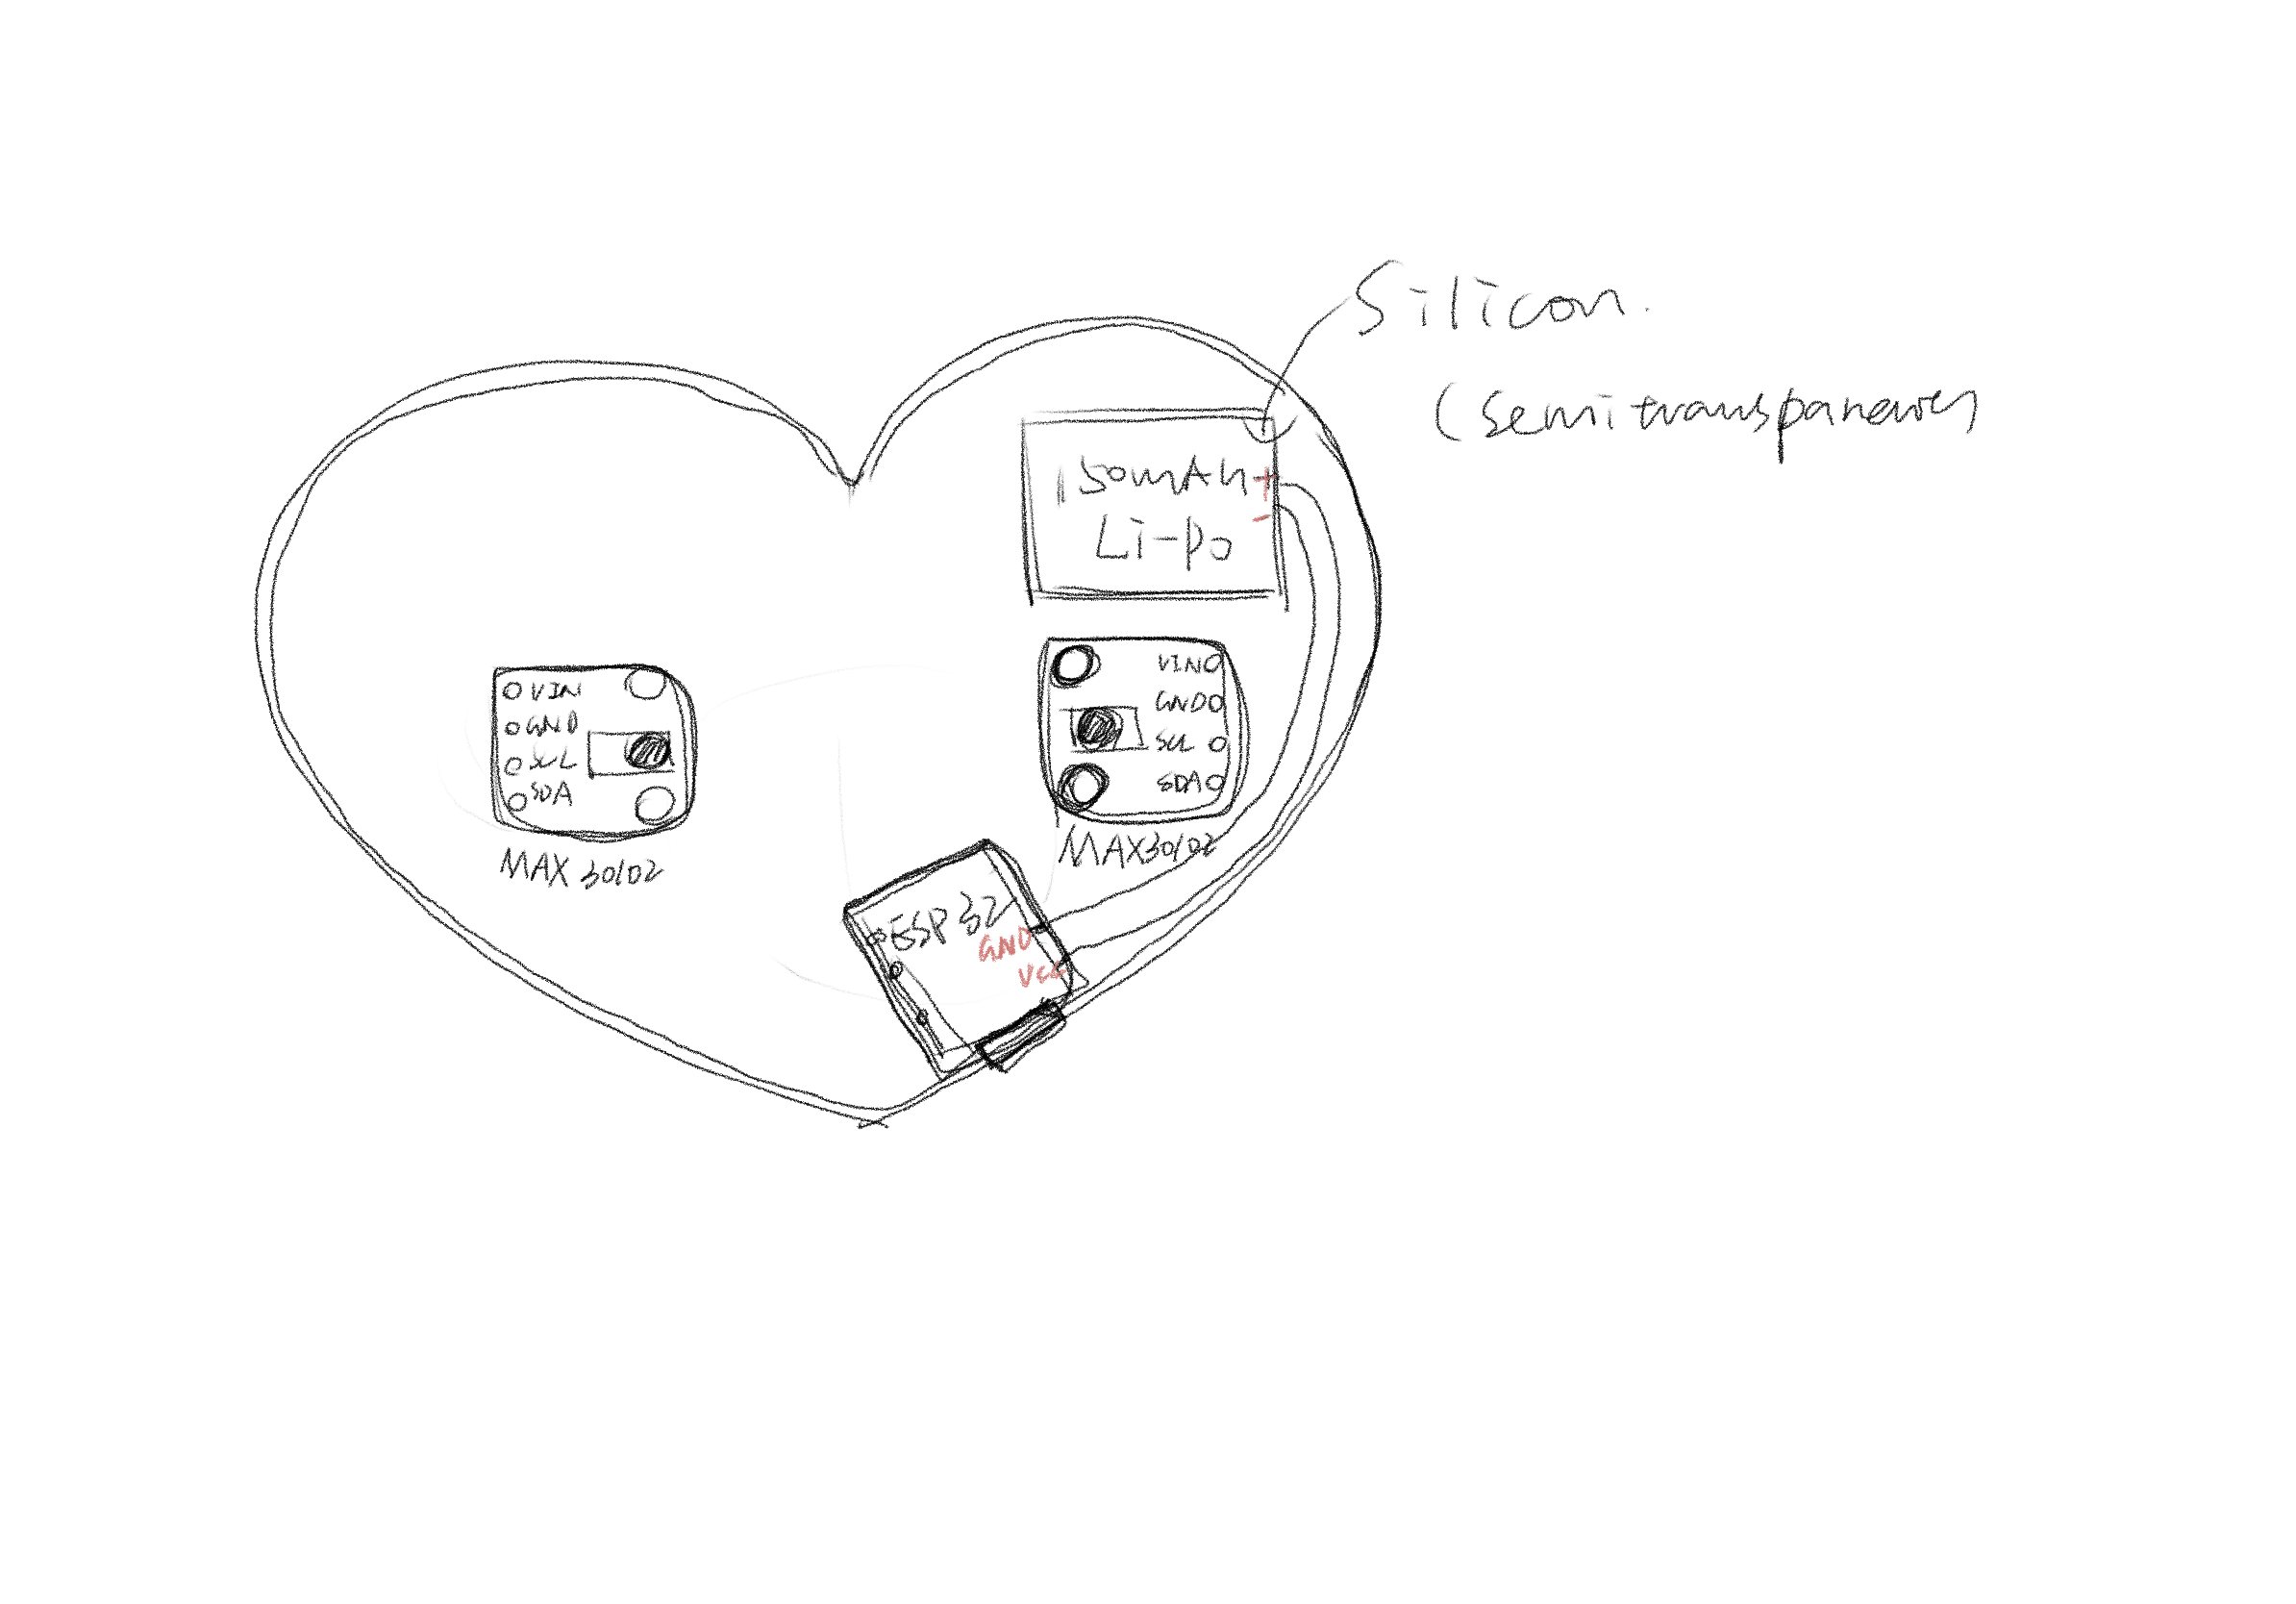 Silicon.
(Semitransparency)
150mAh +
-
Li-po
VIN
GND
SCL
SDA
MAX30102
VIN
GND
SCL
SDA
MAX30102
ESP32
GND
VCC